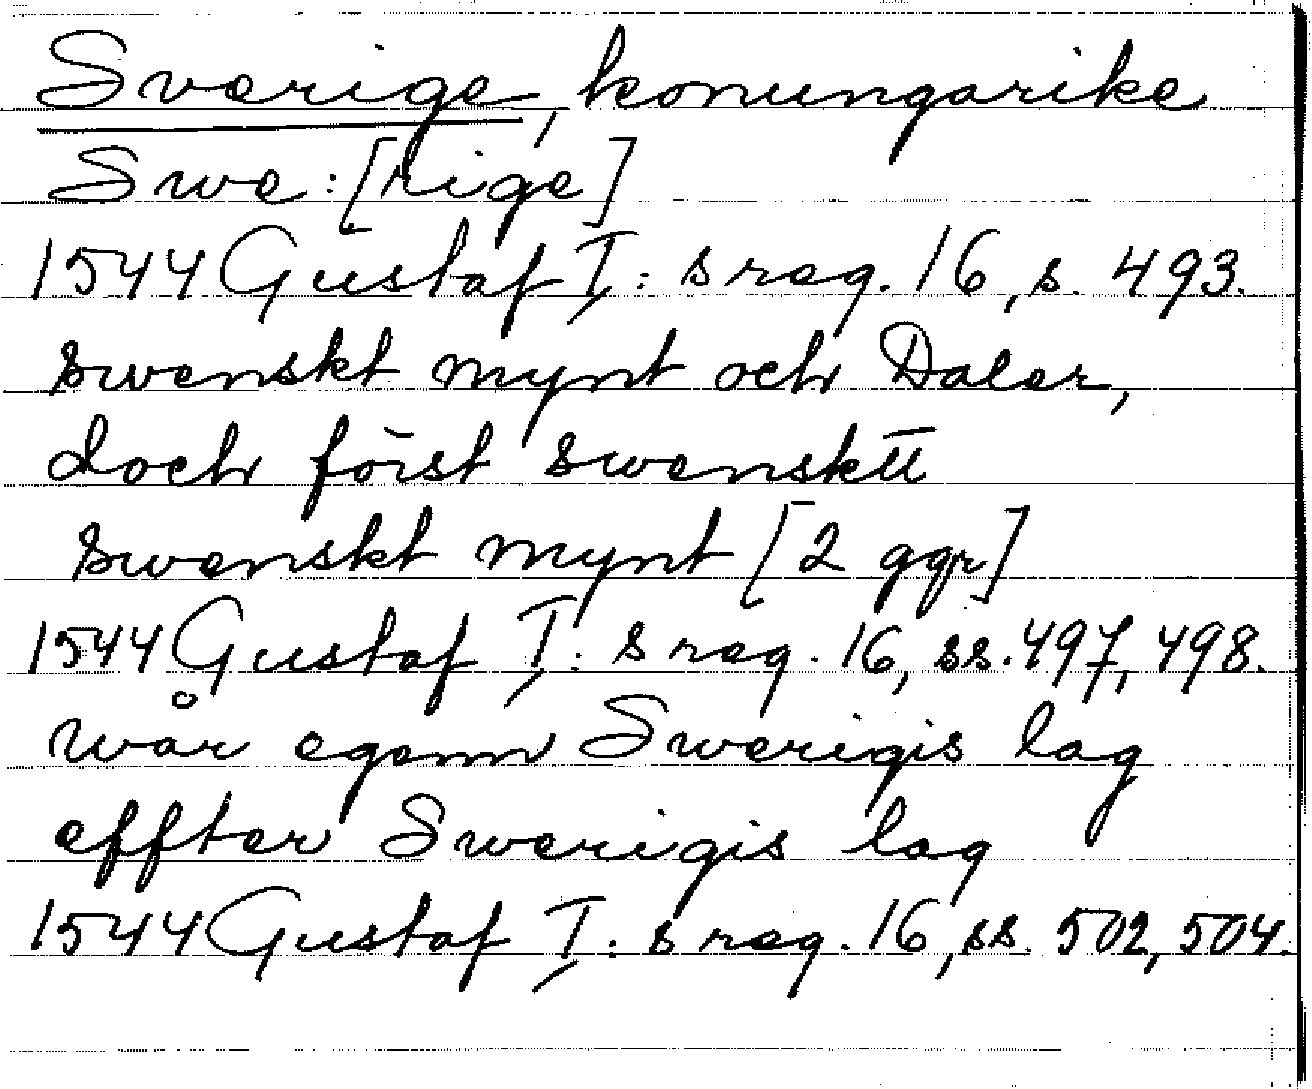 Sverige, konungarike
Swe: [rige]
1544 Gustaf I: s reg. 16, s. 493.
swenskt mynt och Daler,
doch först swensktt
swenskt mynt [2 ggr]
1544 Gustaf I: s reg. 16, ss. 497, 498.
wår egenn Swerigis lag
effter Swerigis lag
1544 Gustaf I: s reg. 16, ss. 502, 504.